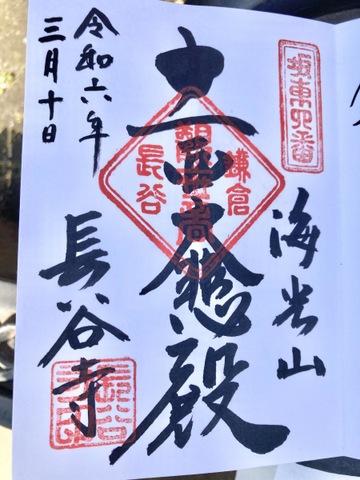 坂東四番
海光山
十一面大悲殿
鎌倉
長谷
令和六年
三月十日
長谷寺